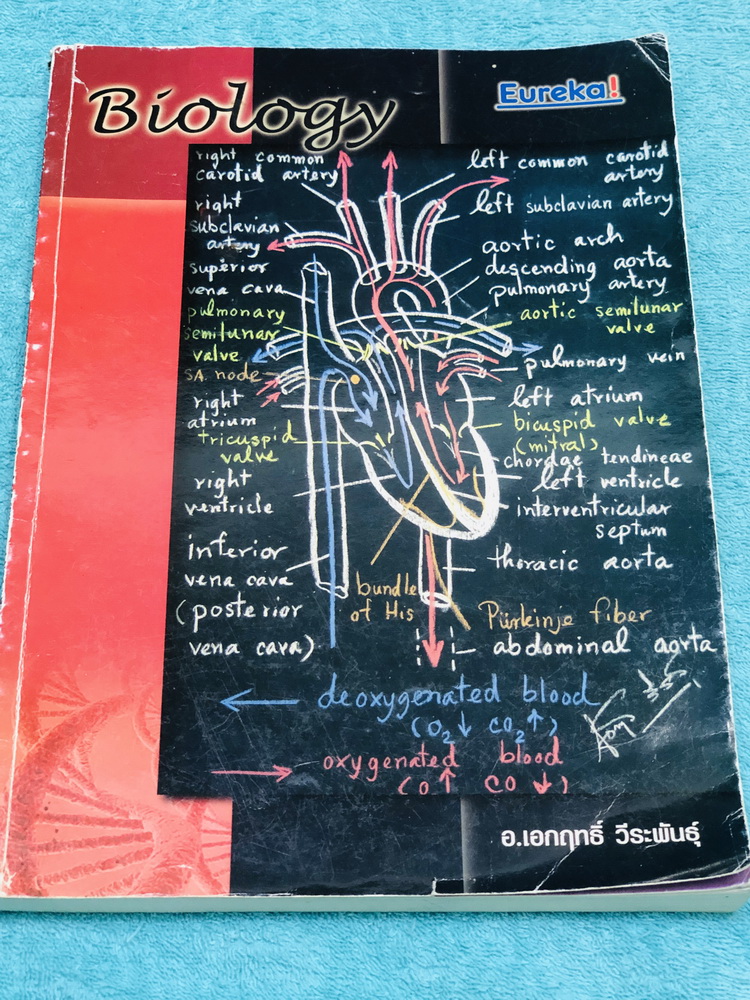 Biology
Eureka!
right common
carotid artery
right
subclavian
artery
superior
vena cava
pulmonary
semilunar
valve
S.A. node
right
atrium
tricuspid
valve
right
ventricle
inferior
vena cava
(posterior
vena cava)
left common carotid
artery
left subclavian artery
aortic arch
descending aorta
pulmonary artery
aortic semilunar
valve
pulmonary vein
left atrium
bicuspid valve
(mitral)
chordae tendineae
left ventricle
interventricular
septum
thoracic aorta
bundle
of His
Pürkinje fiber
abdominal aorta
deoxygenated blood
(O₂↓ CO₂↑)
oxygenated blood
(O↑ CO↓)
อ.เอกฤทธิ์ วีระพันธุ์